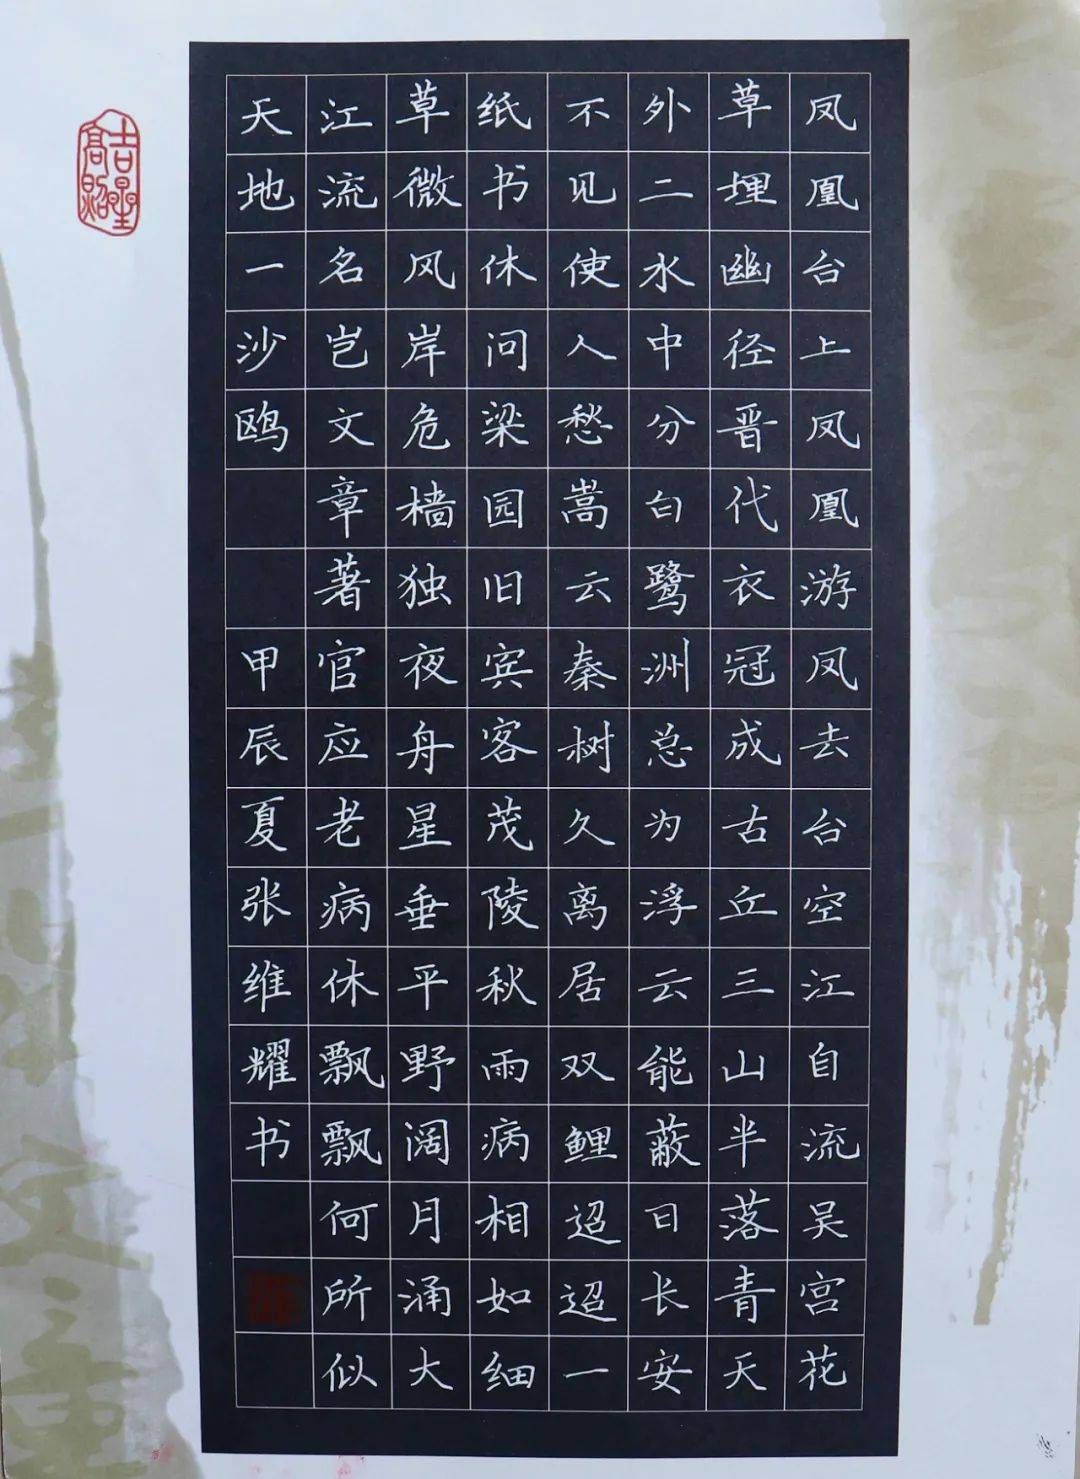 凤凰台上凤凰游凤去台空江自流吴宫花
草埋幽径晋代衣冠成古丘三山半落青天
外二水中分白鹭洲总为浮云能蔽日长安
不见使人愁嵩云秦树久离居双鲤迢迢一
纸书休问梁园旧宾客茂陵秋雨病相如细
草微风岸危樯独夜舟星垂平野阔月涌大
江流名岂文章著官应老病休飘飘何所似
天地一沙鸥
甲辰夏张维耀书
吉星高照